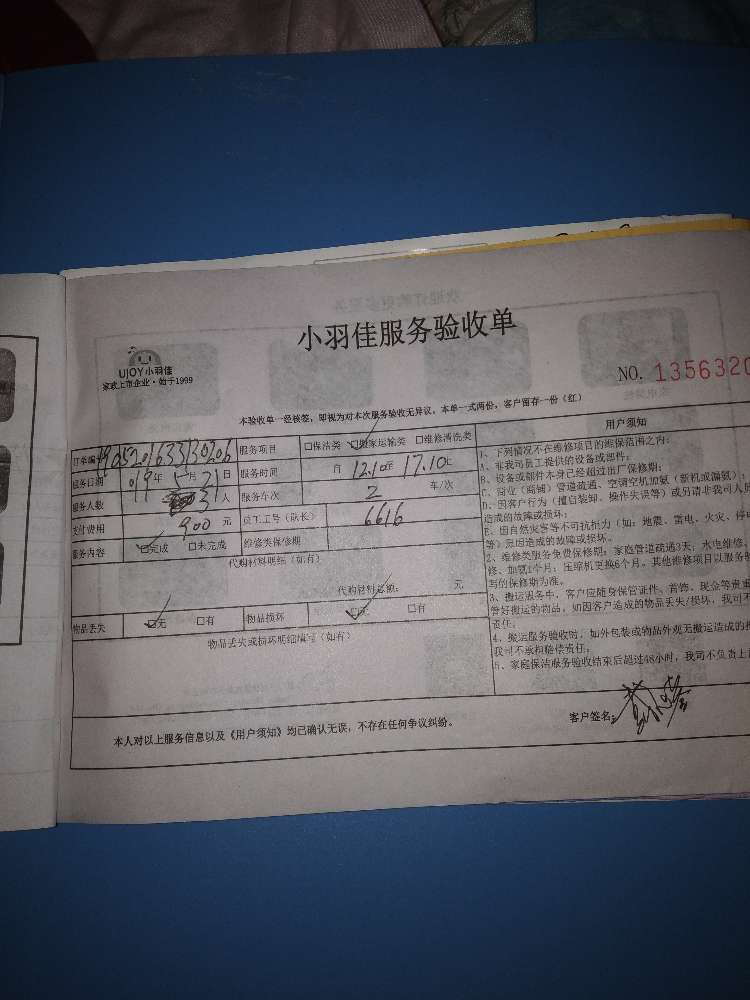 小羽佳服务验收单
UJOY小羽佳
家政上市企业·始于1999
NO. 1356320
本验收单一经核签,即视为对本次服务验收无异议,本单一式两份,客户留存一份(红)
订单编号 服务项目 □保洁类 □搬家运输类 □维修清洗类
服务日期 019年5月21日 服务时间 自 12.10至 17.10止
服务人数 3人 服务车次 2 车/次
支付费用 900 元 员工工号(队长) 6616
服务内容 □完成 □未完成 维修类保修期
代购材料明细(如有)
代购材料总额: 元
物品丢失 □无 □有 物品损坏 □无 □有
物品丢失或损坏明细填写(如有)
用户须知
1、下列情况不在维修项目的维保范围之内:
A、非我司员工提供的设备或部件;
B、设备或部件本身已经超过出厂保修期;
C、商业(商铺)管道疏通、空调空机加氨(新机或漏氨);
D、因客户行为(擅自装卸、操作失误等)或另请非我司人员
造成的故障或损坏;
E、因自然灾害等不可抗拒力(如:地震、雷电、火灾、停
等)原因造成的故障或损坏。
2、维修类服务免费保修期:家庭管道疏通3天;水电维修、
修、加氨1个月;压缩机更换6个月。其他维修项目以服务
写的保修期为准。
3、搬运服务中,客户应随身保管证件、首饰、现金等贵重
管好搬运的物品,如因客户造成的物品丢失/损坏,我司不
责任;
4、搬运服务验收时,如外包装或物品外观无搬运造成的
我司不承担赔偿责任;
5、家庭保洁服务验收结束后超过48小时,我司不负责上
本人对以上服务信息以及《用户须知》均已确认无误,不存在任何争议纠纷。
客户签名: